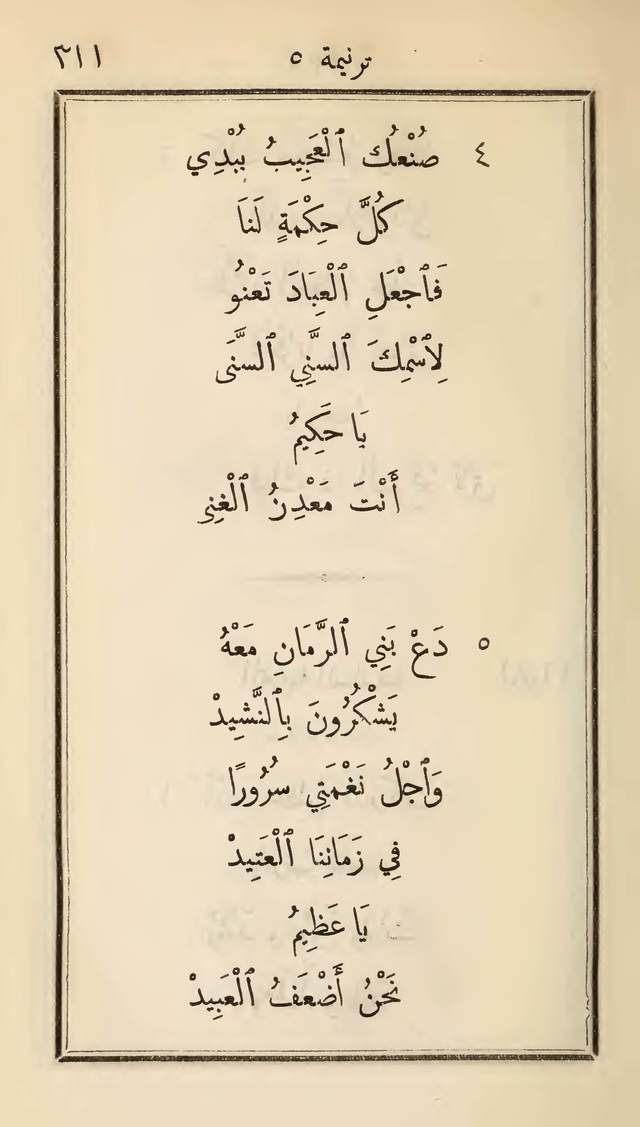 ترنيمة ٥ ٣١١
٤ صُنْعُكَ ٱلْعَجِيبُ يُبْدِي
كُلَّ حِكْمَةٍ لَنَا
فَٱجْعَلِ ٱلْعِبَادَ تَعْنُو
لِٱسْمِكَ ٱلسَّنِي ٱلسَّنَى
يَا حَكِيمُ
أَنْتَ مَعْدِنُ ٱلْغِنِى
٥ دَعْ بَنِي ٱلزَّمَانِ مَعْهُ
يَشْكُرُونَ بِٱلنَّشِيدْ
وَٱجْلُ نَغْمَتِي سُرُورًا
فِي زَمَانِنَا ٱلْعَتِيدْ
يَا عَظِيمُ
نَحْنُ أَضْعَفُ ٱلْعَبِيدْ